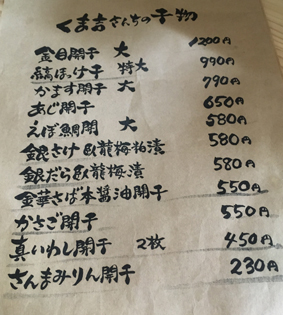 くま吉さんちの干物
金目開干 大 1200円
縞ほっけ干 特大 990円
かます開干 大 790円
あじ開干 650円
えぼ鯛開 大 580円
銀さけ臥龍梅粕漬 580円
銀だら臥龍梅漬 580円
金華さば本醤油開干 550円
かさご開干 550円
真いわし開干 2枚 450円
さんまみりん開干 230円